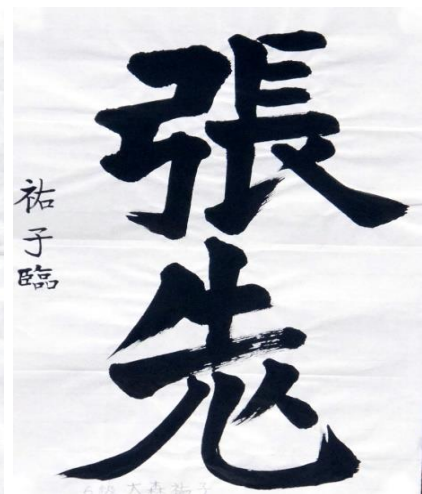 張先
祐子臨
大森祐子